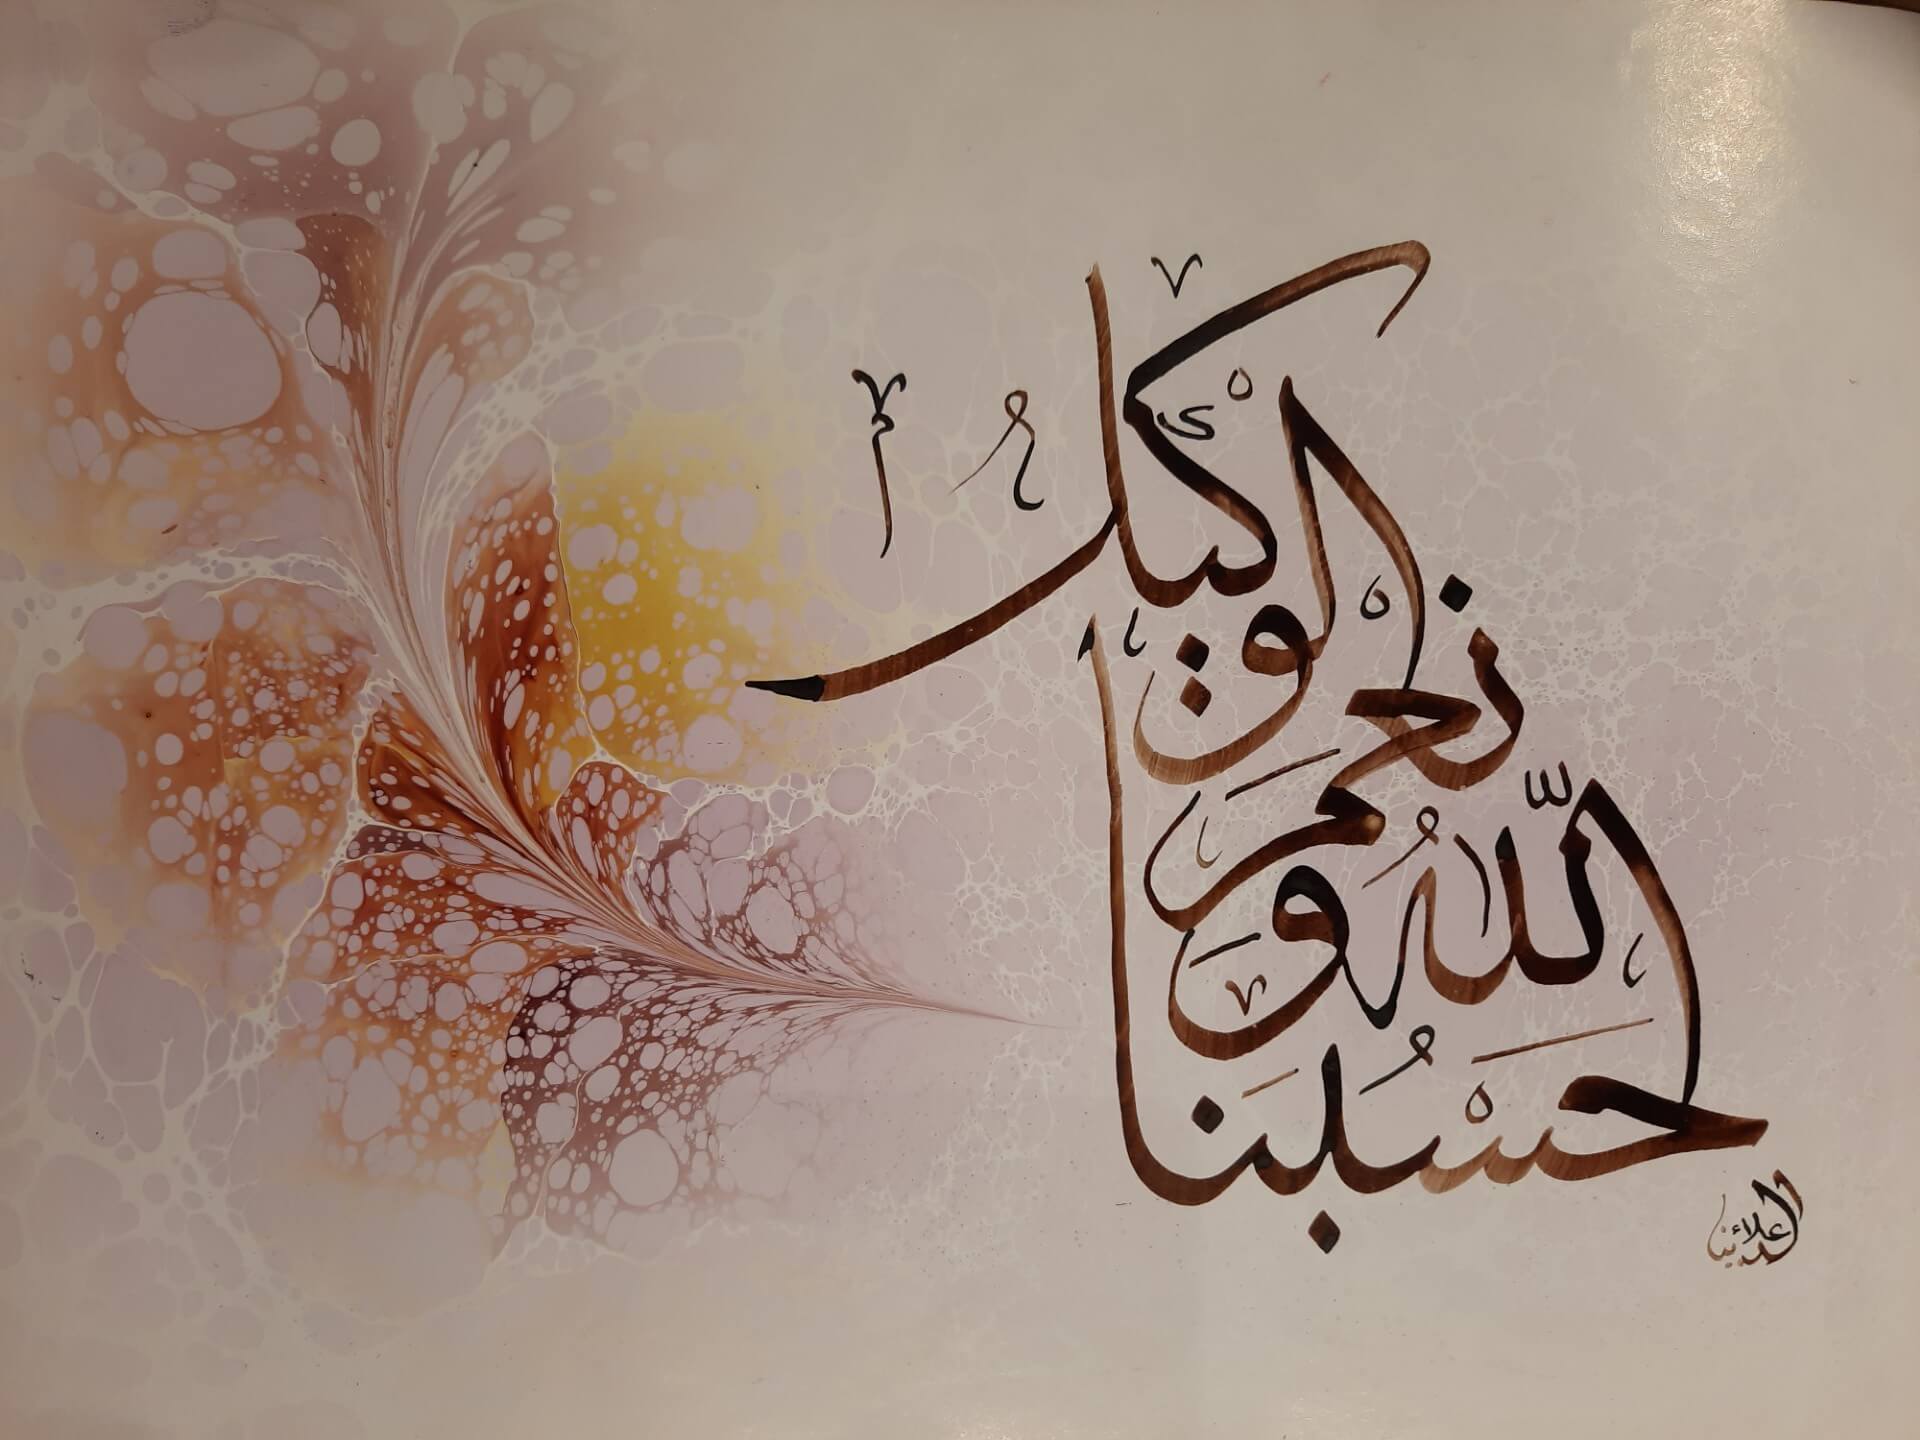 حَسْبُنَا
اللّٰهُ وَ
نِعْمَ
الْوَكِيلُ
علاء الدين